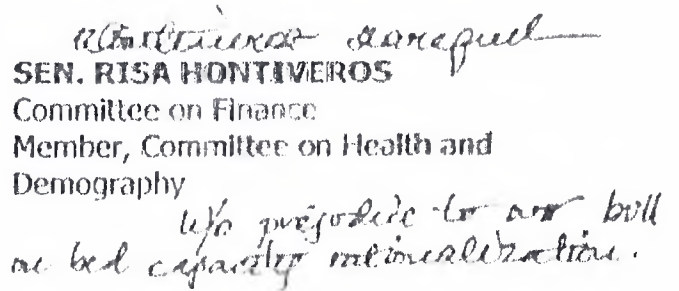 SEN. RISA HONTIVEROS
Committee on Finance
Member, Committee on Health and
Demography
w/o prejudice to our bill
on bed capacity rationalization.